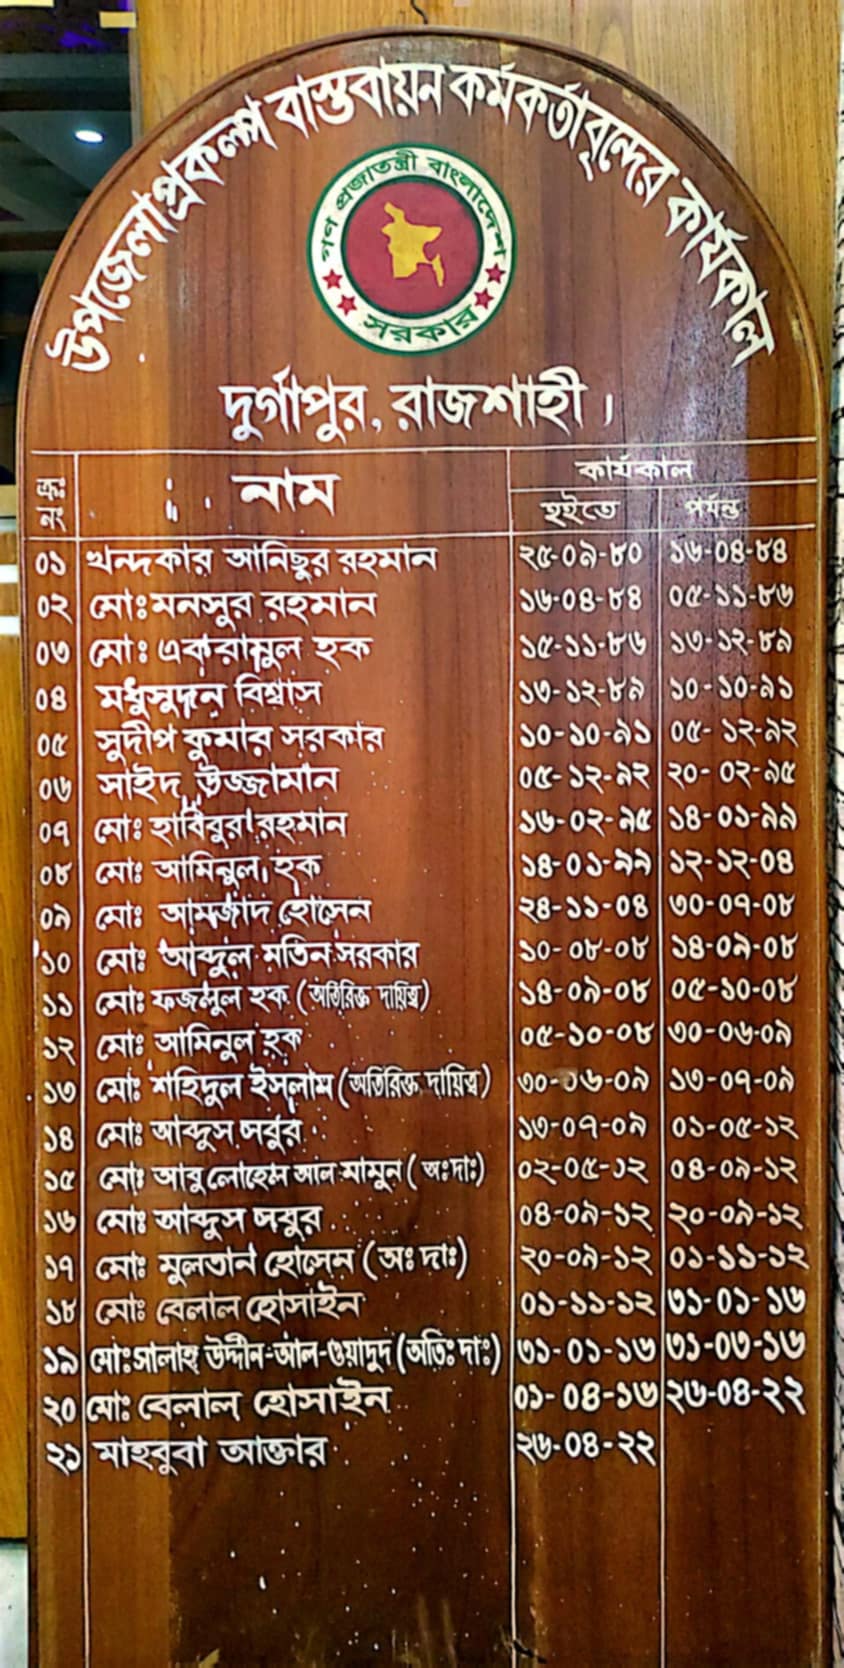 উপজেলা প্রকল্প বাস্তবায়ন কর্মকর্তাবৃন্দের কার্যকাল
গণ প্রজাতন্ত্রী বাংলাদেশ
সরকার
দুর্গাপুর, রাজশাহী।
ক্রঃ নং নাম কার্যকাল
হইতে পর্যন্ত
০১ খন্দকার আনিছুর রহমান ২৫-০৯-৮০ ১৬-০৪-৮৪
০২ মোঃ মনসুর রহমান ১৬-০৪-৮৪ ০৫-১১-৮৬
০৩ মোঃ একরামুল হক ১৫-১১-৮৬ ১৩-১২-৮৯
০৪ মধুসুদন বিশ্বাস ১৩-১২-৮৯ ১০-১০-৯১
০৫ সুদীপ কুমার সরকার ১০-১০-৯১ ০৫-১২-৯২
০৬ সাইদ উজ্জামান ০৫-১২-৯২ ২০-০২-৯৫
০৭ মোঃ হাবিবুর রহমান ১৬-০২-৯৫ ১৪-০১-৯৯
০৮ মোঃ আমিনুল হক ১৪-০১-৯৯ ১২-১২-০৪
০৯ মোঃ আমজাদ হোসেন ২৪-১১-০৪ ৩০-০৭-০৮
১০ মোঃ আব্দুল মতিন সরকার ১০-০৮-০৮ ১৪-০৯-০৮
১১ মোঃ ফজলুল হক (অতিরিক্ত দায়িত্ব) ১৪-০৯-০৮ ০৫-১০-০৮
১২ মোঃ আমিনুল হক ০৫-১০-০৮ ৩০-০৬-০৯
১৩ মোঃ শহিদুল ইসলাম (অতিরিক্ত দায়িত্ব) ৩০-০৬-০৯ ১৩-০৭-০৯
১৪ মোঃ আব্দুস সবুর ১৩-০৭-০৯ ০১-০৫-১২
১৫ মোঃ আবু সোহেল আল মামুন (অঃদাঃ) ০২-০৫-১২ ০৪-০৯-১২
১৬ মোঃ আব্দুস সবুর ০৪-০৯-১২ ২০-০৯-১২
১৭ মোঃ মুলতান হোসেন (অঃ দাঃ) ২০-০৯-১২ ০১-১১-১২
১৮ মোঃ বেলাল হোসাইন ০১-১১-১২ ৩১-০১-১৬
১৯ মোঃ সালাহ উদ্দীন-আল-ওয়াদুদ (অতিঃ দাঃ) ৩১-০১-১৬ ৩১-০৩-১৬
২০ মোঃ বেলাল হোসাইন ০১-০৪-১৬ ২৬-০৪-২২
২১ মাহবুবা আক্তার ২৬-০৪-২২